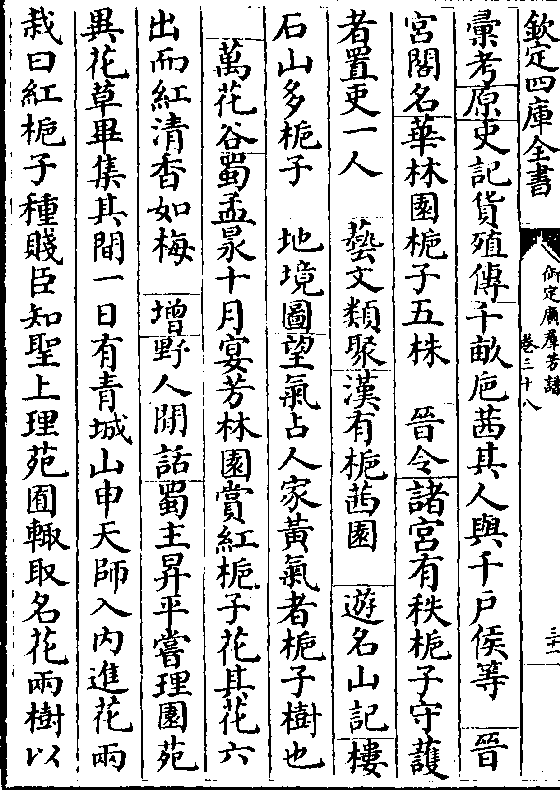 欽定四庫全書
御定廣羣芳譜
卷三十八
彚考原史記貨殖傳千畝巵茜其人與千戶侯等　晉
宮閣名華林園梔子五株　晉令諸宮有秩梔子守護
者置吏一人　藝文類聚漢有梔茜園　遊名山記樓
石山多梔子　地境圖望氣占人家黃氣者梔子樹也
萬花谷蜀孟㫤十月宴芳林園賞紅梔子花其花六
出而紅清香如梅　增野人閒話蜀主昇平嘗理園苑
異花草畢集其間一日有青城山申天師入內進花兩
栽曰紅梔子種賤臣知聖上理苑囿輙取名花兩樹以